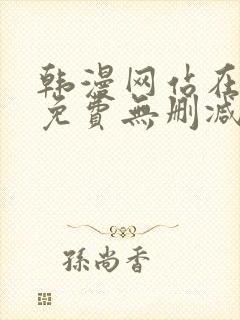 韩漫网站在
免費無删减
孫尚香